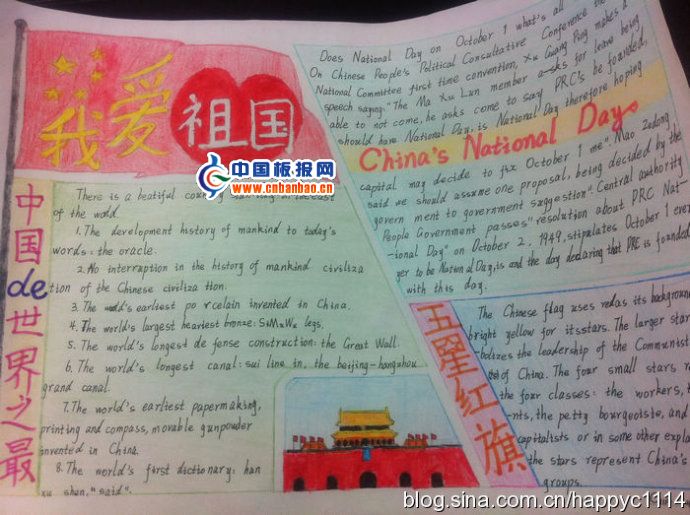 我爱祖国
中国板报网
www.cnbanbao.cn
中国de世界之最
There is a beatiful
of the wold.
1. The development history of mankind to today's
words: the oracle.
2. No interruption in the history of mankind civiliza
tion of the Chinese civiliza tion.
3. The world's earliest po rcelain invented in China.
4. The world's largest heaviest bronze: SiMuWu legs.
5. The world's longest de fense construction: the Great Wall.
6. The world's longest canal: sui line in, the beijing-hangzhou
grand canal.
7. The world's earliest papermaking,
printing and compass, movable gunpowder
invented in China.
8. The world's first dictionary: han
xu shen, "said".
Does National Day on October 1 what's all
On Chinese People's Political Consultative Conference the
National Committee first time convention, Xu Guang Ping makes a
speech saying: "The Ma Xu Lun member asks for leave being
able to not come, he asks come to say PRC's be founded,
should have National Day, is National Day therefore hoping
China's National Days
capital may decide to fix October 1 me". Mao Zedong
said we should assume one proposal, being decided by the
govern ment to government suggestion". Central authority
People Government passes "resolution about PRC Nat-
-ional Day" on October 2, 1949, stipulates October 1 ever
yer to be National Day, is and the day declaring that PRC is founded
with this day.
五星红旗
The Chinese flag uses red as its background
bright yellow for its stars. The larger star
-bolizes the leadership of the Communist
of China. The four small stars
the four classes: the workers,
-nts, the petty bourgeoiste, and
capitalists or in some other expla
the stars represent China's
groups.
blog.sina.com.cn/happyc1114